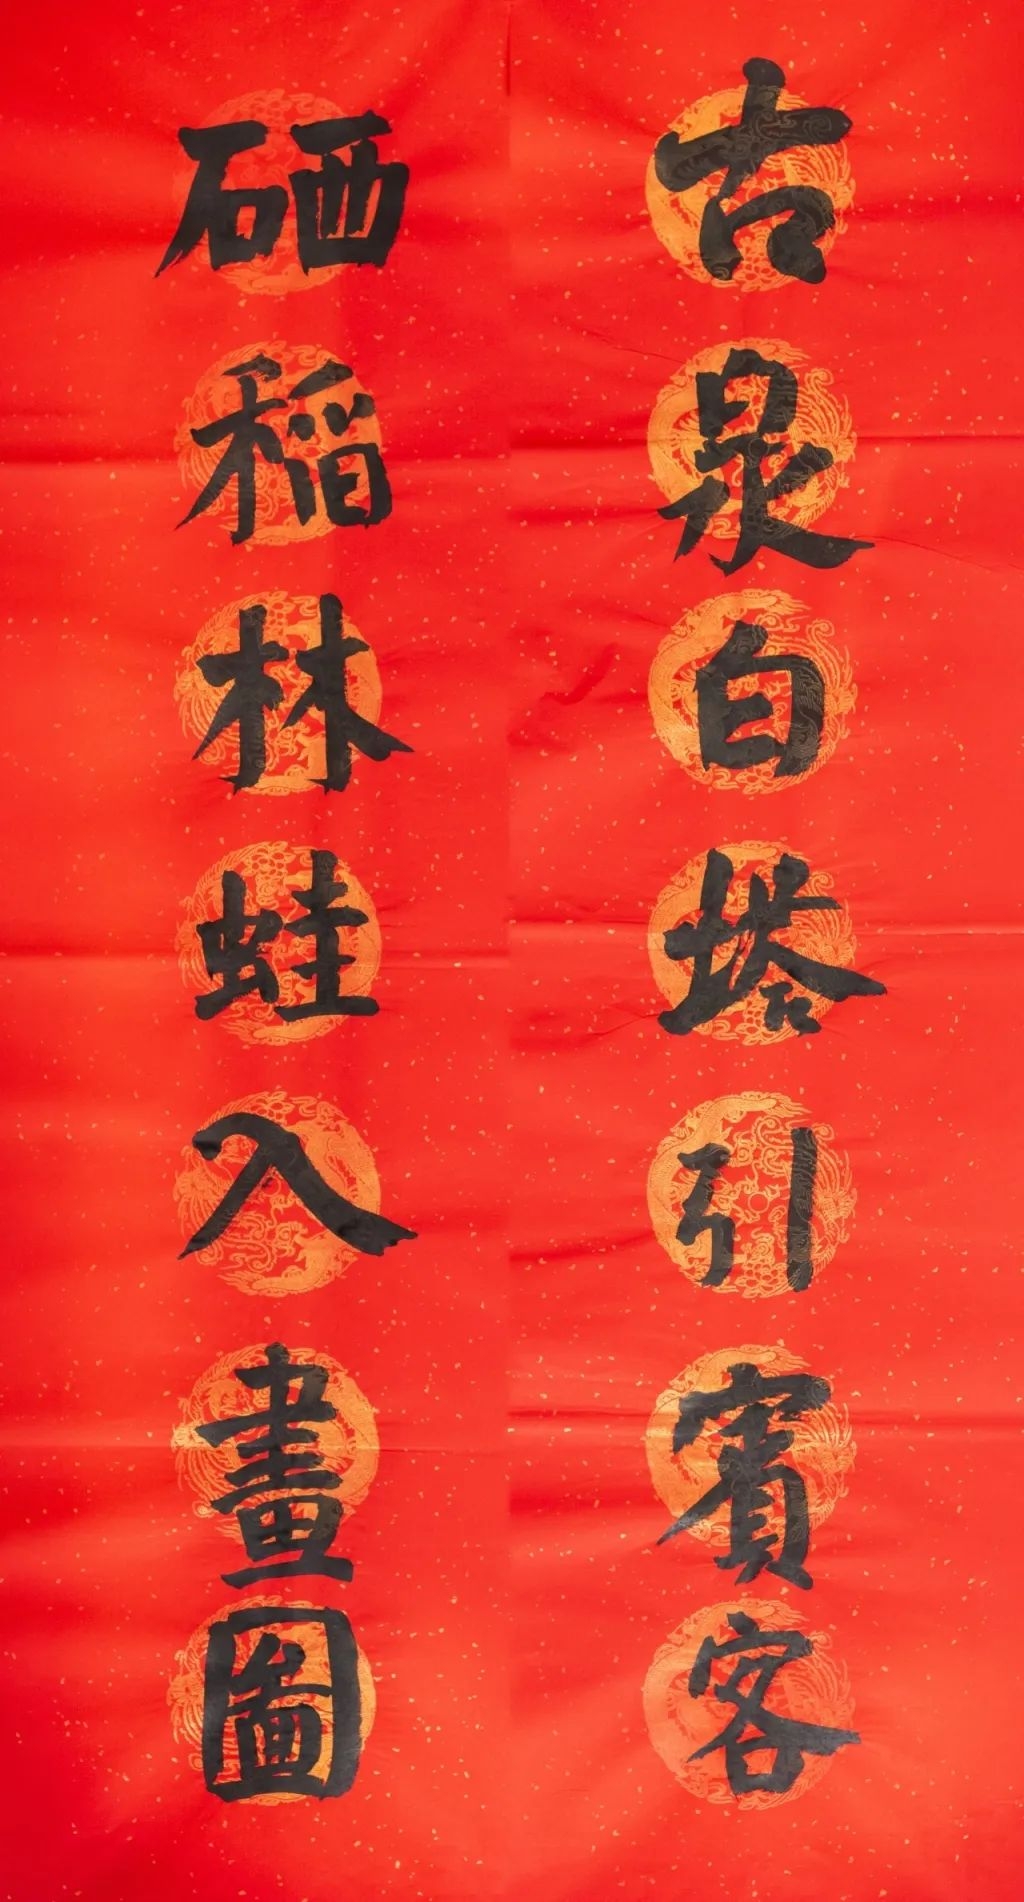 古泉白塔引賓客
硒稻林蛙入畫圖